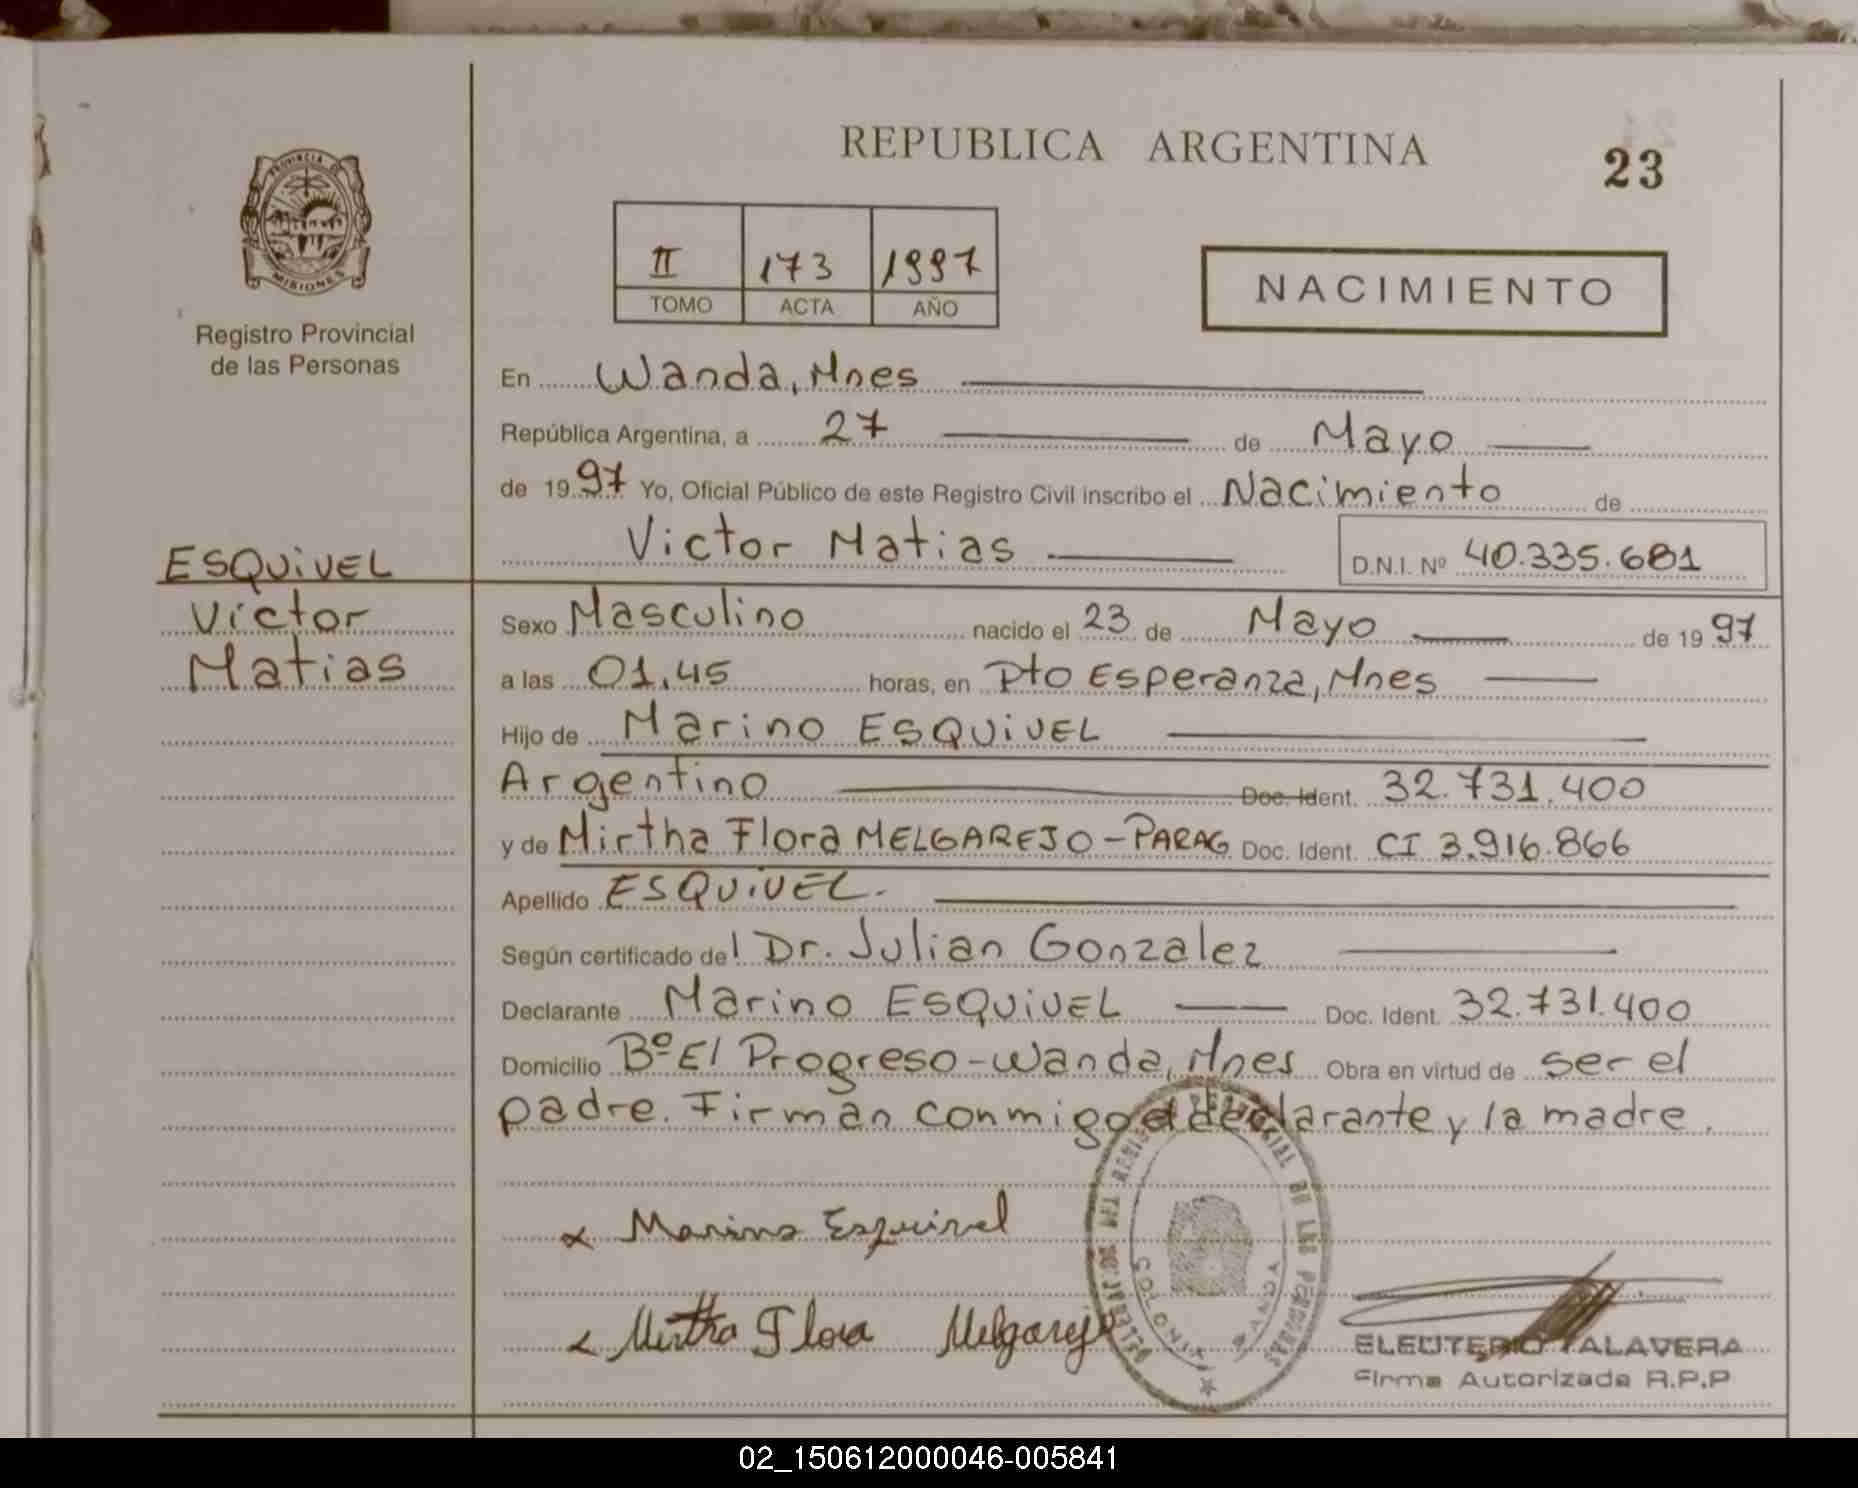 REPUBLICA ARGENTINA
23
PROVINCIA DE
MISIONES
Registro Provincial
de las Personas
II 173 1997
TOMO ACTA AÑO
NACIMIENTO
En Wanda, Mnes
República Argentina, a 27 de Mayo
de 1997 Yo, Oficial Público de este Registro Civil inscribo el Nacimiento de
Victor Matias D.N.I. Nº 40.335.681
ESQUIVEL
Victor
Matias
Sexo Masculino nacido el 23 de Mayo de 1997
a las 01,45 horas, en Pto Esperanza, Mnes
Hijo de Marino ESQUIVEL
Argentino Doc. Ident. 32.731.400
y de Mirtha Flora MELGAREJO - PARAG Doc. Ident. CI 3.916.866
Apellido ESQUIVEL.
Según certificado del Dr. Julian Gonzalez
Declarante Marino ESQUIVEL Doc. Ident. 32.731.400
Domicilio Bº El Progreso - Wanda, Mnes Obra en virtud de ser el
padre. Firman conmigo el declarante y la madre.
x Marino Esquivel
x Mirtha Flora Melgarejo
DEL REGISTRO PROVINCIAL DE LAS PERSONAS
WANDA
ELEUTERIO TALAVERA
Firma Autorizada R.P.P
02_150612000046-005841